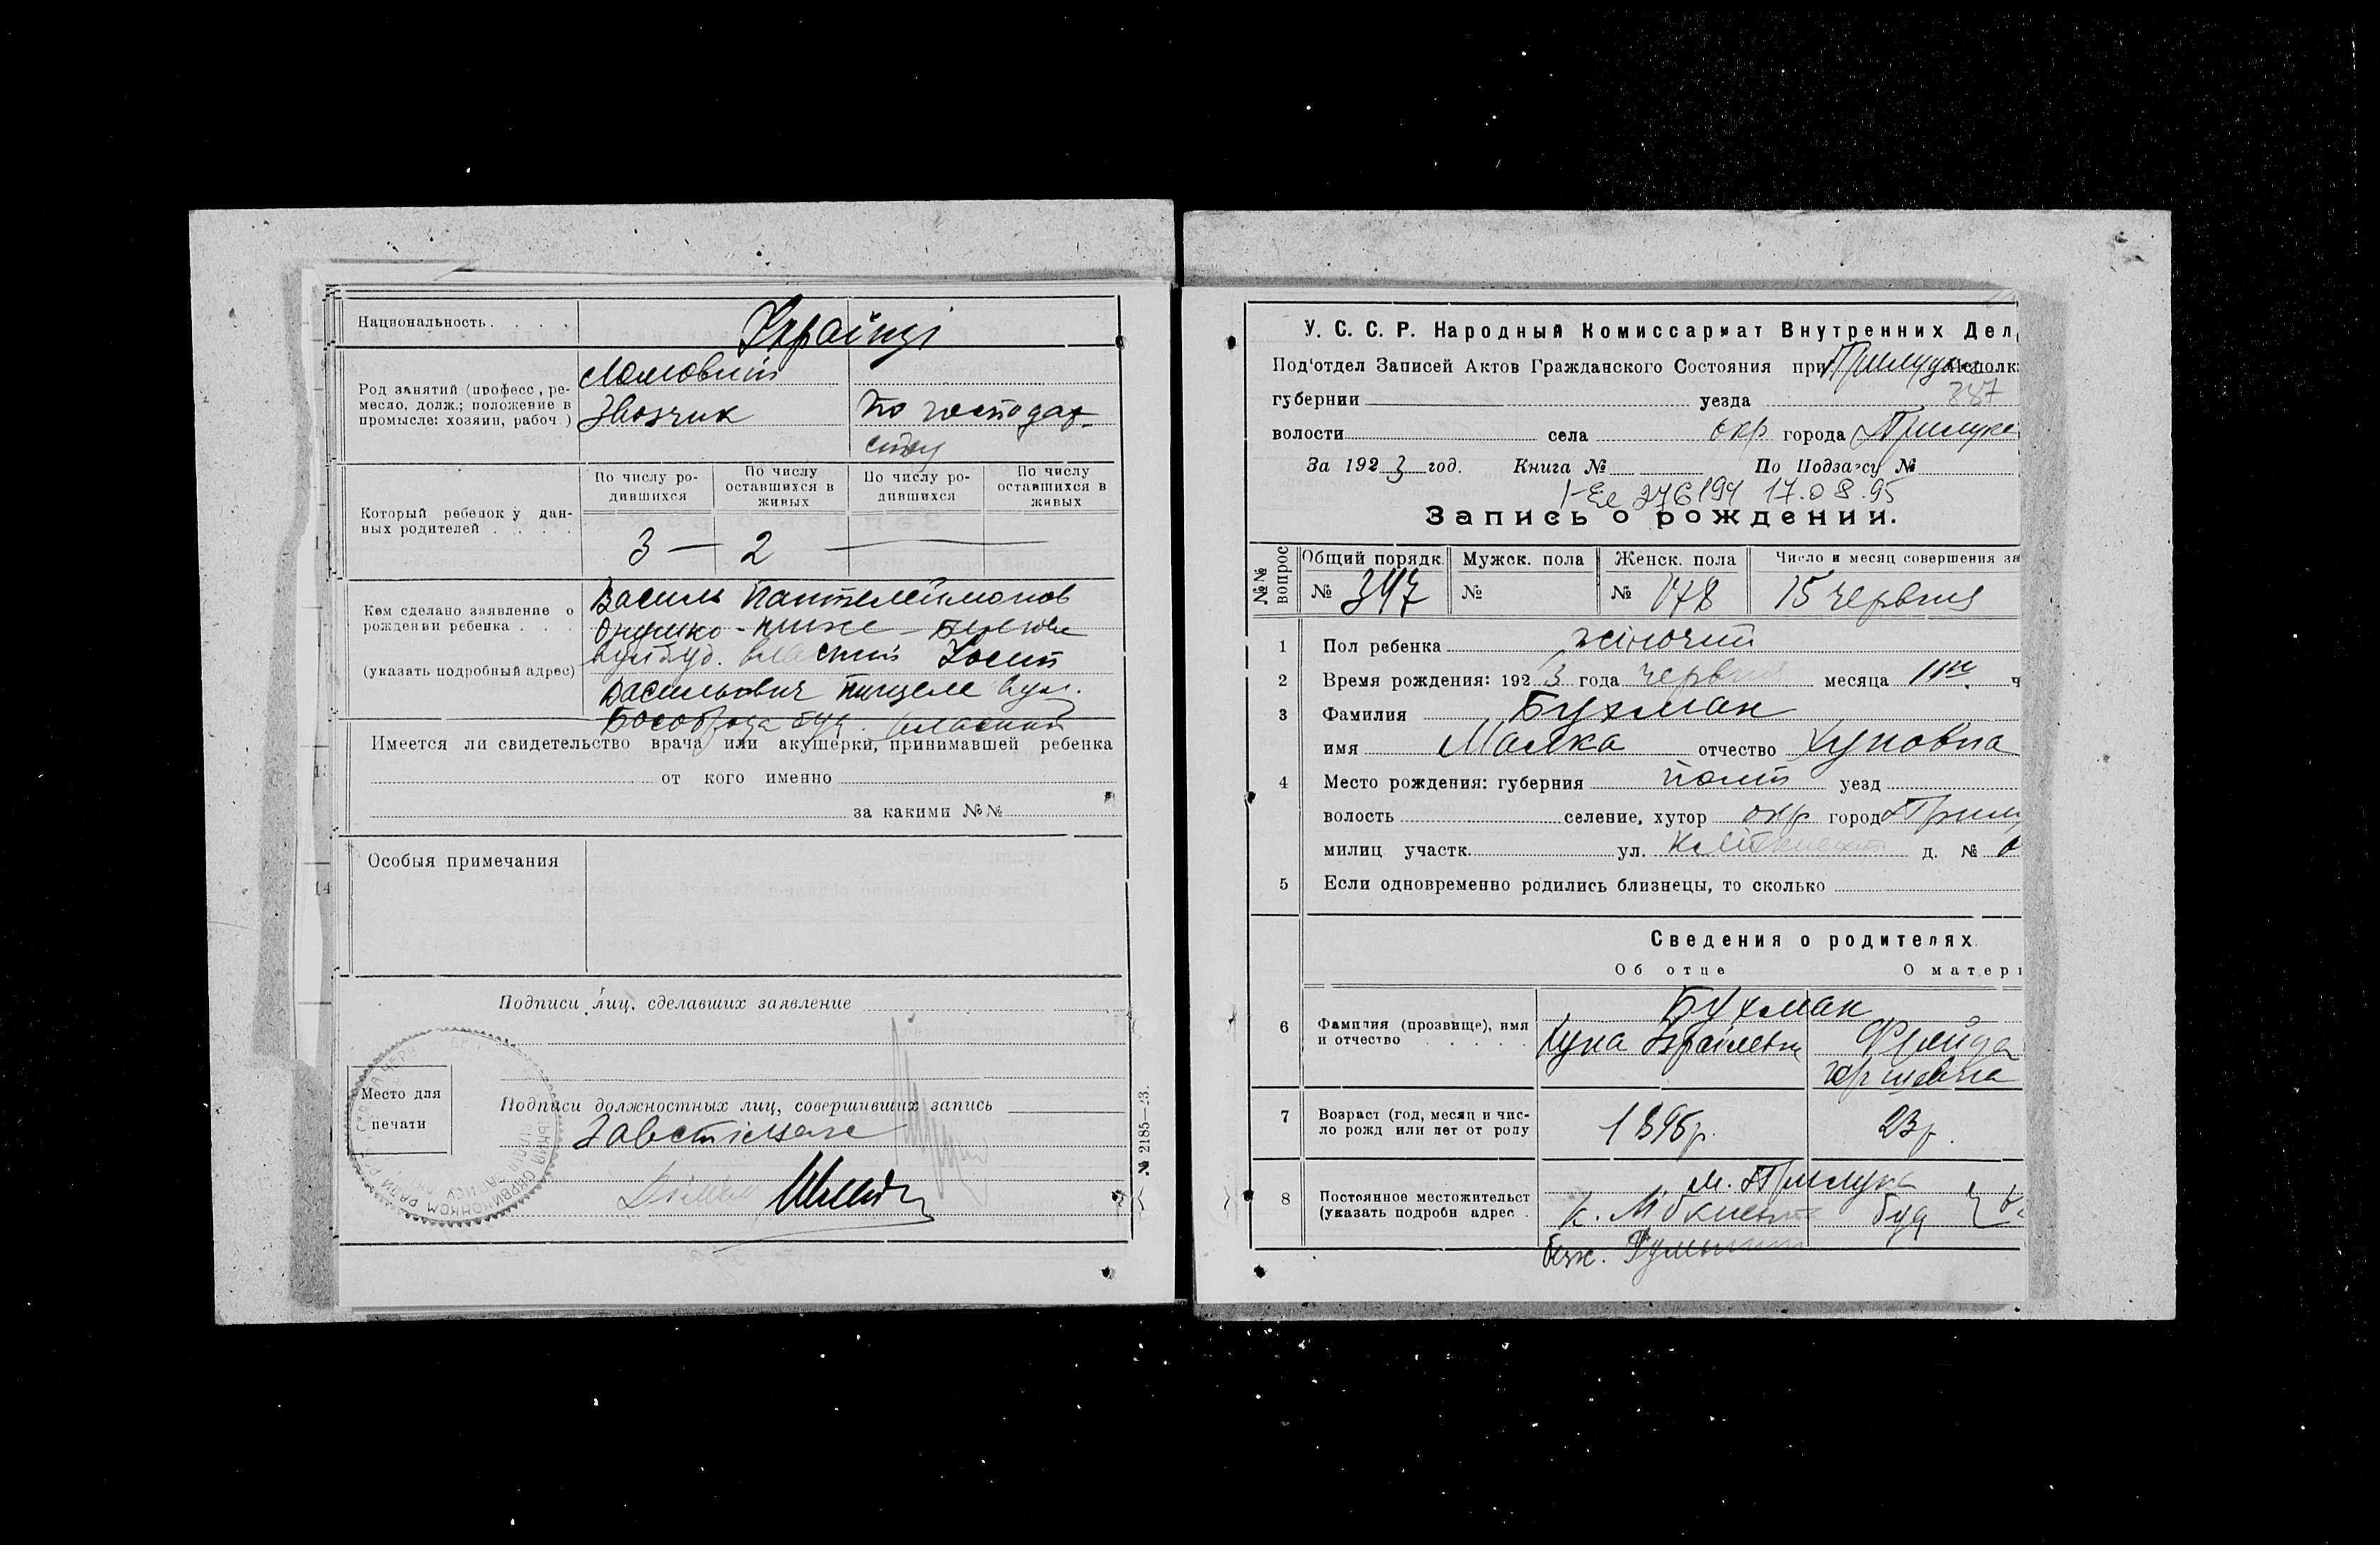 Национальность
Українці
Род занятий (професс, ре-
месло, долж.; положение в
промысле: хозяин, рабоч.)
Ломовий
Звозчик
по господар-
ству
Который ребенок у дан-
ных родителей
По числу ро-
дившихся
По числу
оставшихся в
живых
По числу ро-
дившихся
По числу
оставшихся в
живых
3 — 2
Кем сделано заявление о
рождении ребенка
(указать подробный адрес)
Василь Пантелеймонов
буд. власний
Васильович вул.
буд. власний
Имеется ли свидетельство врача или акушерки, принимавшей ребенка
от кого именно
за какими №№
Особыя примечания
Подписи лиц, сделавших заявление
Место для
печати
Подписи должностных лиц, совершивших запись
№ 2185—23.
У. С. С. Р. Народный Комиссариат Внутренних Дел
Под'отдел Записей Актов Гражданского Состояния при Исполк
губернии уезда
волости села окр города Прилуки
За 1923 год. Книга № По Подзагсу №
276194 17.08.95
Запись о рождении.
№№ вопрос
Общий порядк. Мужск. пола Женск. пола Число и месяц совершения за
№ 347 № № 178 15 червня
1 Пол ребенка жіночий
2 Время рождения: 1923 года червня месяца 11го ч
3 Фамилия Бухман
имя Малка отчество Хуновна
4 Место рождения: губерния полт уезд
волость селение, хутор окр город Прилу
милиц участк. ул. д. №
5 Если одновременно родились близнецы, то сколько
Сведения о родителях
Об отце О матери
6 Фамилия (прозвище), имя
и отчество
Бухман
Хуна Ізраілевич Фрейда
Гершовна
7 Возраст (год, месяц и чис-
ло рожд или лет от роду
1896р. 23р.
8 Постоянное местожительст
(указать подробн адрес
м. Прилука
буд